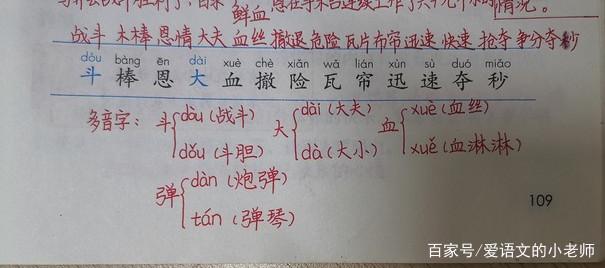 鲜血 恩在手术台连续工作了六十九个小时 情况。
战斗 木棒 恩情 大夫 血丝 撤退 危险 瓦片 布帘 迅速 快速 抢夺 争分夺秒
dòu bàng ēn dài xuè chè xiǎn wǎ lián xùn sù duó miǎo
斗 棒 恩 大 血 撤 险 瓦 帘 迅 速 夺 秒
多音字： 斗 dòu（战斗） 大 dài（大夫） 血 xuè（血丝）
dǒu（斗胆） dà（大小） xuě（血淋淋）
弹 dàn（炮弹）
tán（弹琴）
109
百家号/爱语文的小老师